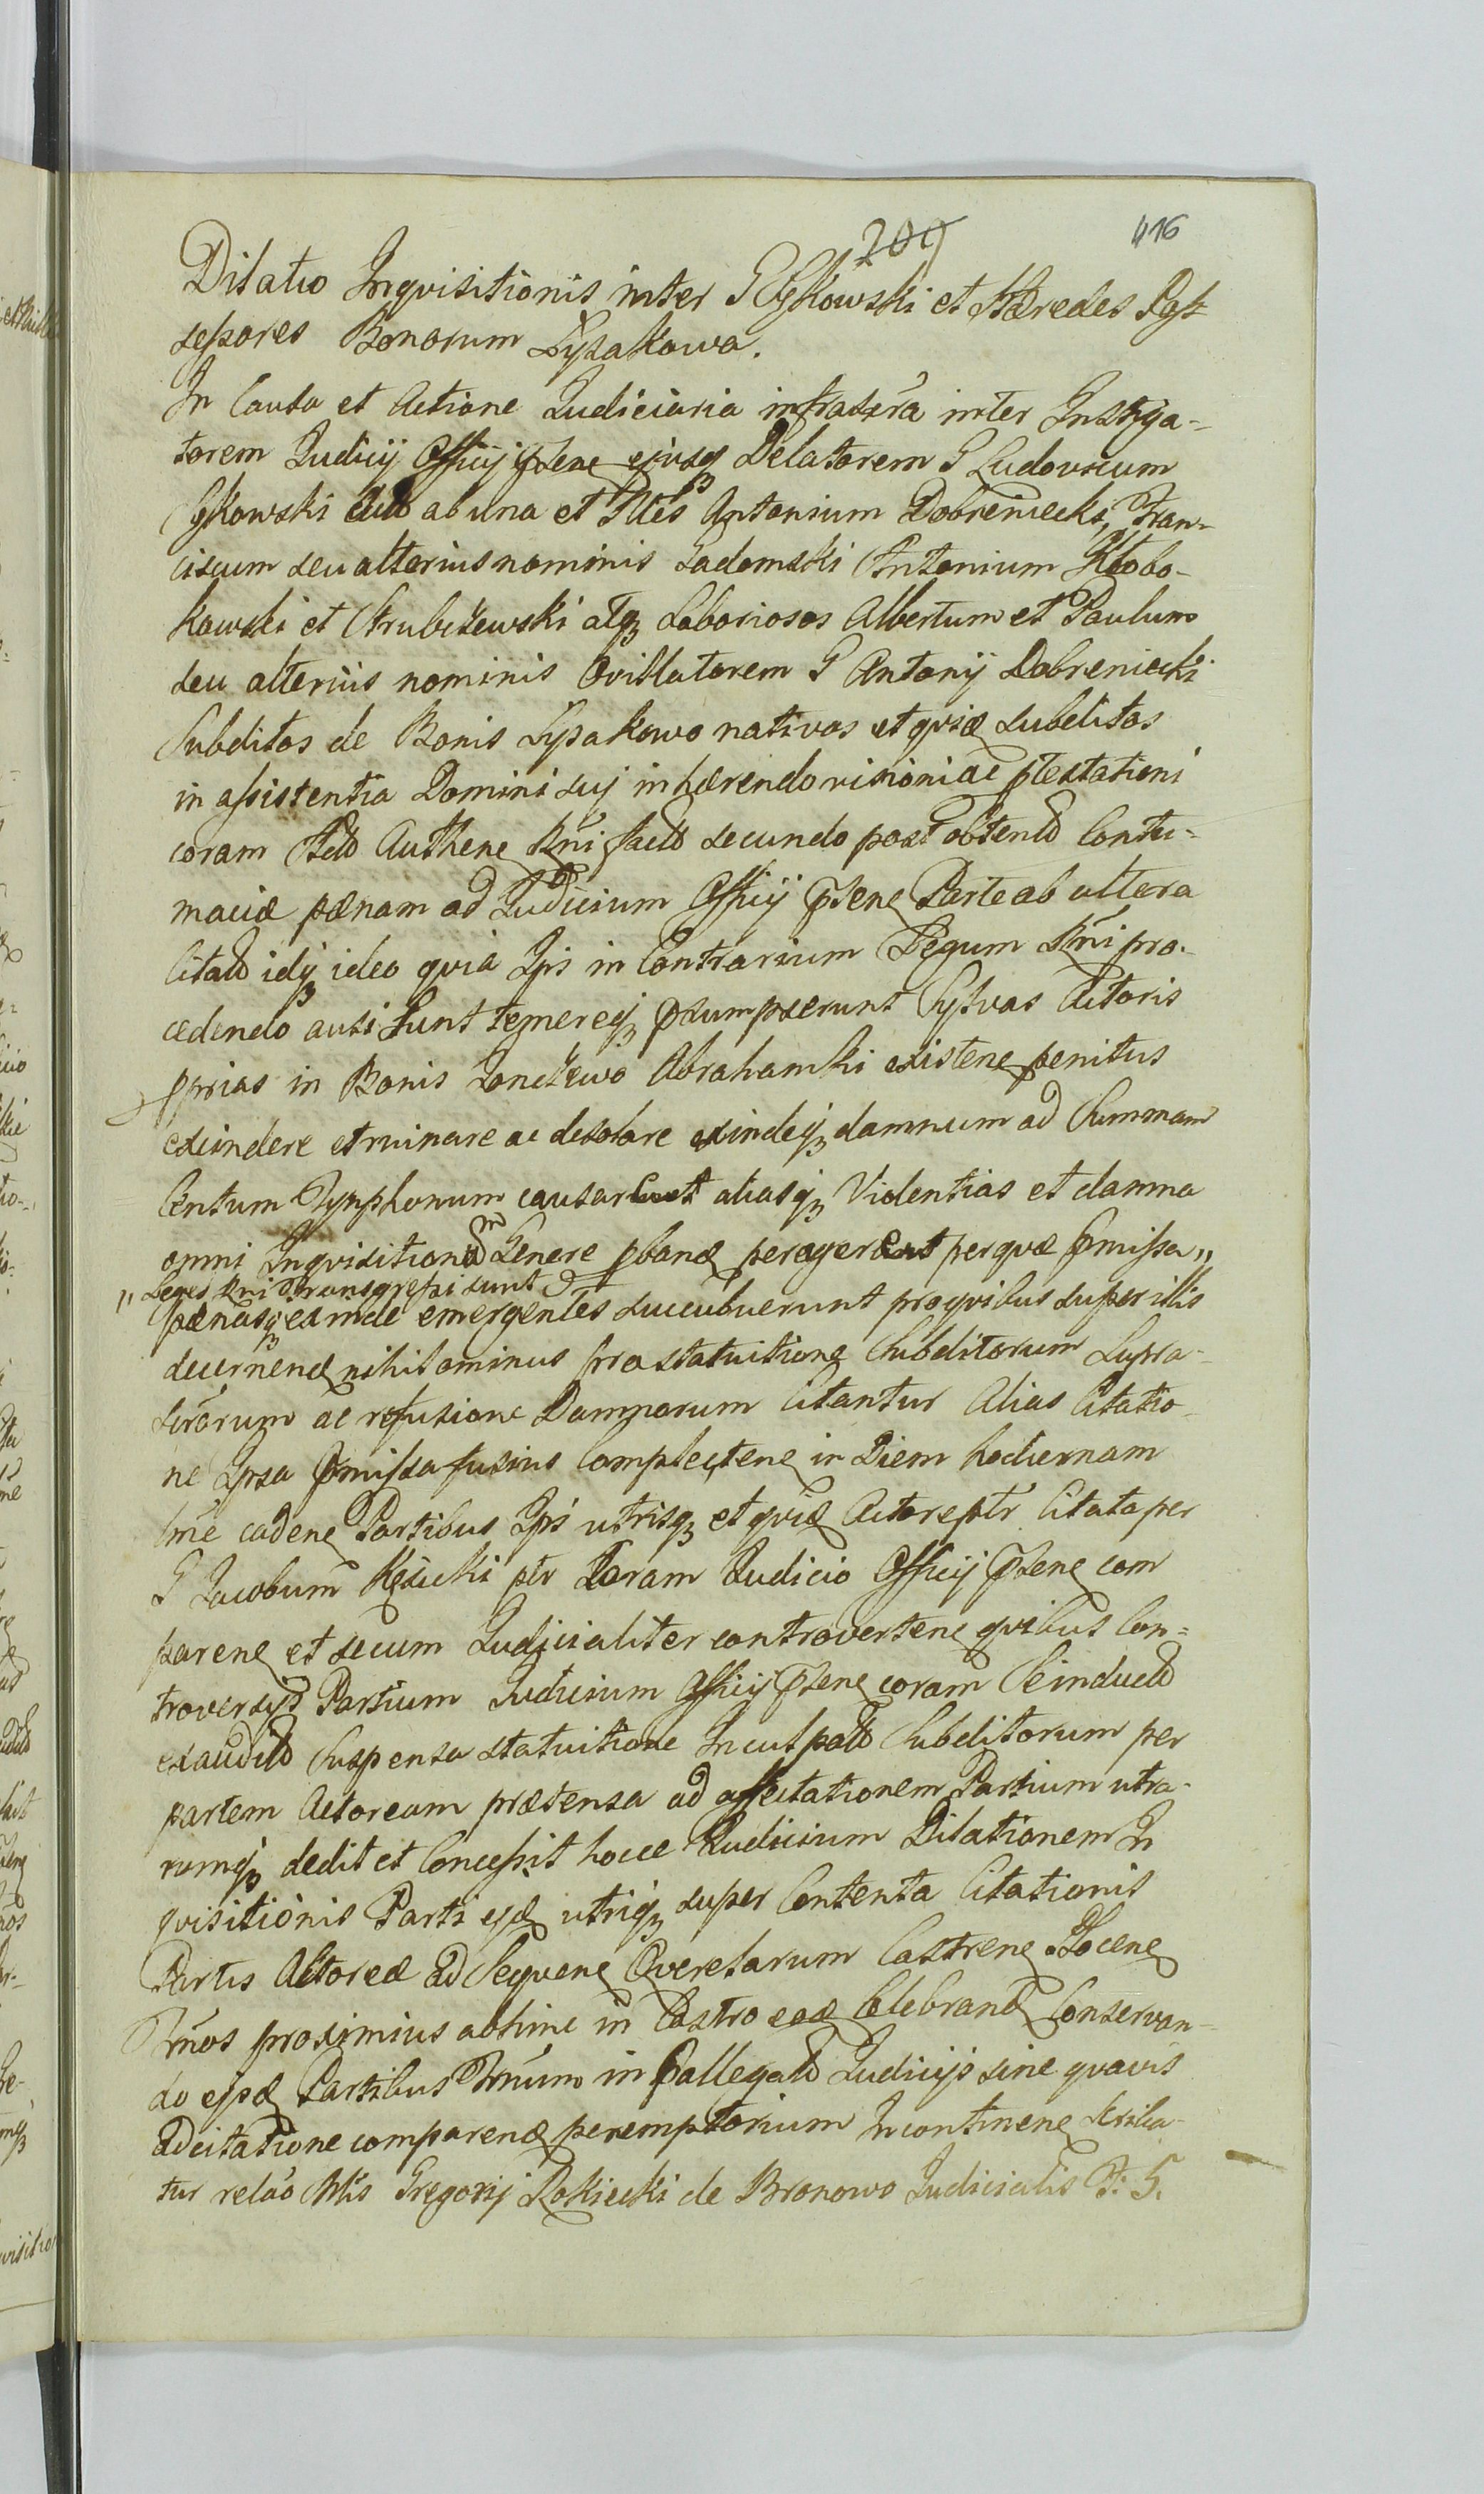 209
416
Dilatio Inqvisitionis inter G Cykowski et Hæredes Pos-
sessores Bonorum Lysakowa.
In Causa et Actione Judiciaria infrascra inter Instiga-
torem Judicij Officij pstene ejusq Delatorem G Ludovicum
Cykowski ab una et Nles Antonium Dobreniecki, Fran-
ciscum seu alterius nominis Sadomski Antonium Kłobo-
kowski et Strubczewski atq Laboriosos Albertum et Paulum
seu alterius nominis Ovillatorem G Antonij Dobreniecki
Subditos de Bonis Lysakowo nativos et qviæ subditos
in assistentia Domini sui inhærendo visioni ac ptestationi
coram Actis Authene Rni facto secundo post obtento Contu-
maciæ pænam ad Judicium Officij pstene Parte ab altera
Citato idq ideo qvia Ipsi in Contrarium Legum Rni pro-
cedendo ausi sunt temereq psumpserunt Sylvas Actoris
pprias in Bonis Lonczewo Abrahamki existene penitus
excindere et ruinare ac desolare exindeq damnum ad Summam
Centum Tynphonum causarunt aliasq Violentias et damna
omni Inqvisitionum Genere pbanæ peragerunt per qvæ pmissa „
„ Leges Rni transgressi sunt
pænasq exinde emergentes succubuerunt pro qvibus super illis
decernenæ nihilominus pro statuitione Subditorum Supra-
scrorum ac refusione Damnorum Citantur Alias Citatio-
ne Ipsa pmissa fusius Complectene in Diem hodiernam
tme cadene Partibus Ipsis utrisq et qviæ Actore ptr Citata per
G Jacobum Kęsicki ptr Coram Judicio Officij pstene com
parene et secum Judicialiter controvertene qvibus Con-
troversys Partium Judicium Officij pstene coram Se inducto
exaudito Suspensa statuitione Inculpato Subditorum per
partem Actoream prætensa ad affectationem Partium utra-
rumq dedit et Concessit hocce Judicium Dilationem In
qvisitionis Parti ejsæ utriq super Contenta Citationis
Partis Actoreæ ad Seqvene Qverelarum Castrene Plocene
Trnos proximius abhinc in Castro eoæ Celebranæ Conservan-
do ejsæ Partibus Trnum in pallegato Judicijs sine qvavis
adcitatione comparenæ peremptorium In continene scriba-
tur relao Mtis Gregorij Rokiecki de Bronowo Judicialis F: 5.